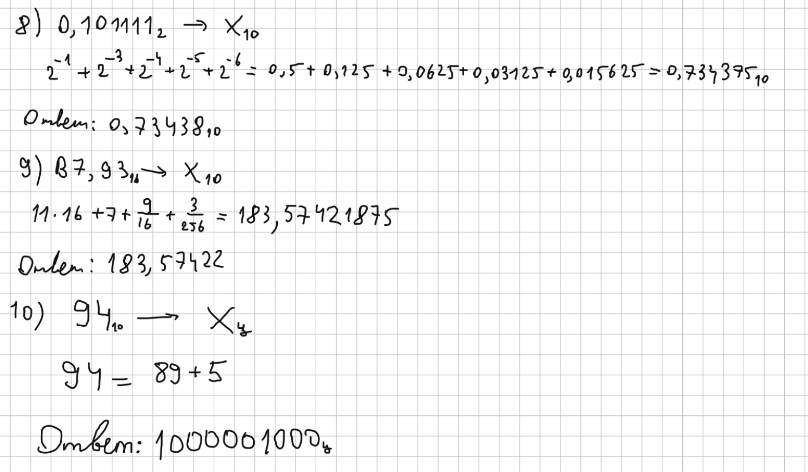 8) 0,101111₂ → X₁₀
2⁻¹ + 2⁻³ + 2⁻⁴ + 2⁻⁵ + 2⁻⁶ = 0,5 + 0,125 + 0,0625 + 0,03125 + 0,015625 = 0,734375₁₀
Ответ: 0,73438₁₀
9) B7,93₁₆ → X₁₀
11·16 + 7 + 9/16 + 3/256 = 183,57421875
Ответ: 183,57422
10) 94₁₀ → Xц
94 = 89 + 5
Ответ: 1000001000ц